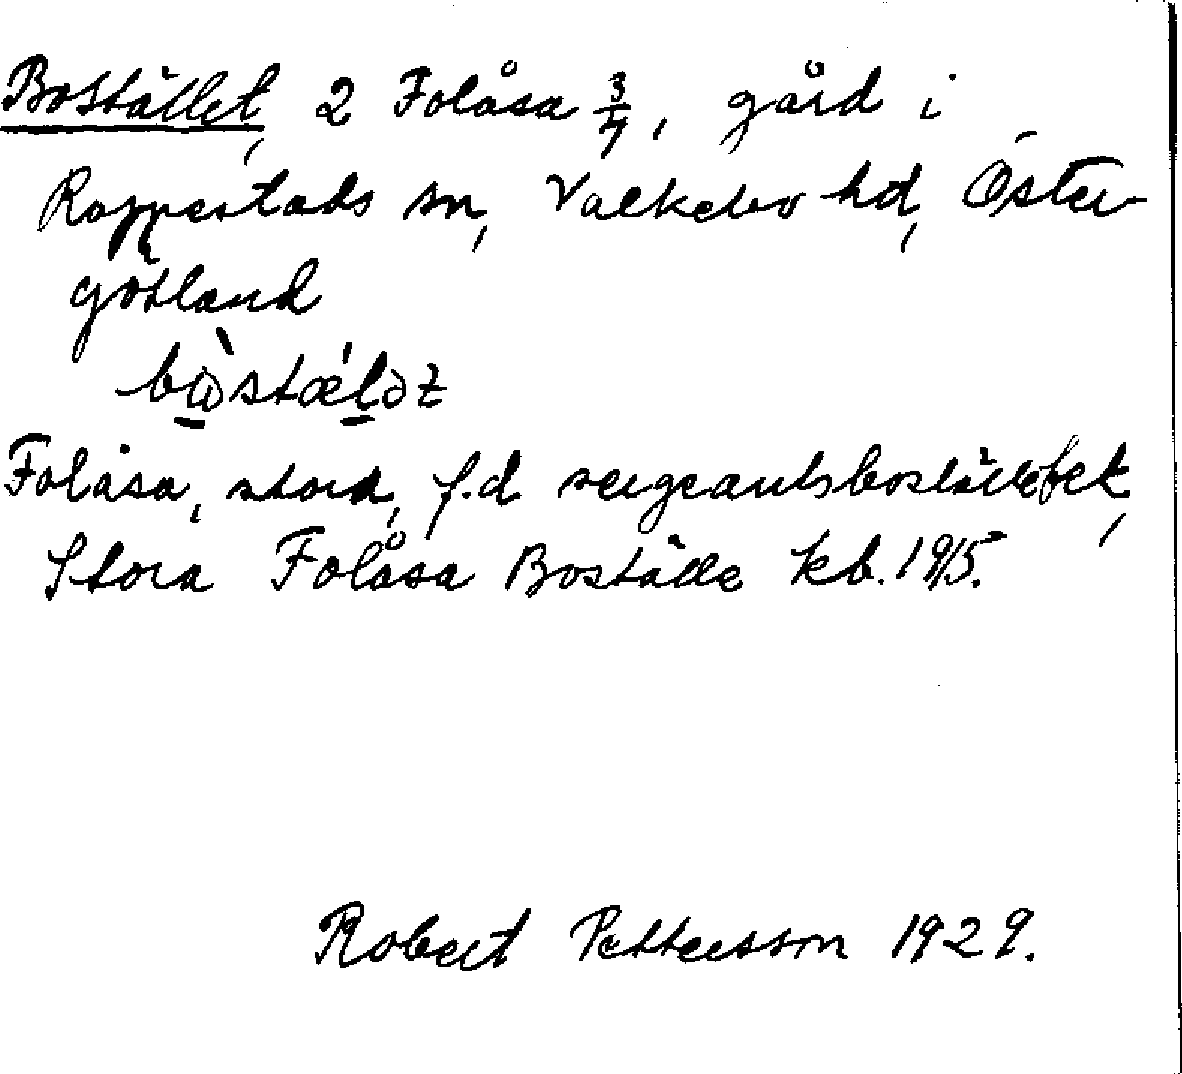 Bostället, 2 Folåsa 3/7, gård i
Rappestads sn, Valkebo hd, Öster-
götland
bùstǽləz
Folåsa, stora, f.d sergeantsboställe fek,
Stora Folåsa Boställe kb. 1915.
Robert Pettersson 1929.